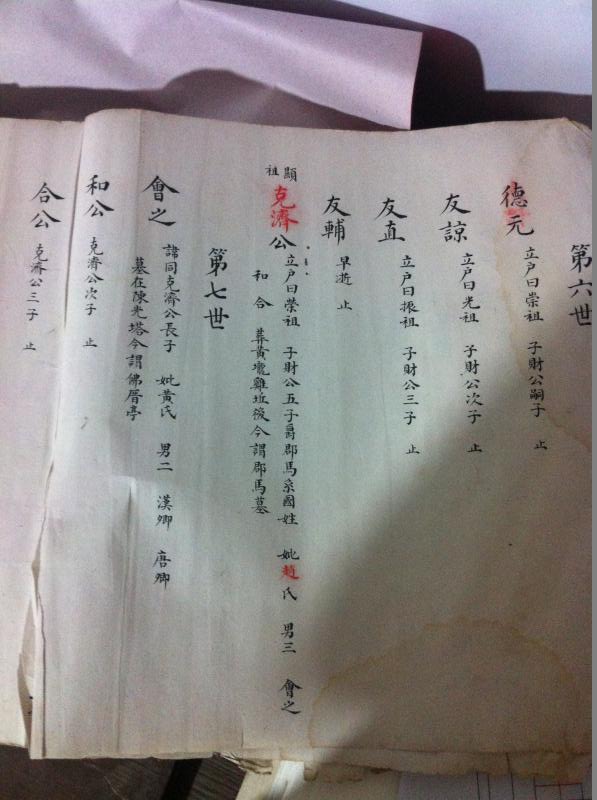 第六世
德元 立戶曰崇祖 子財公嗣子 止
友諒 立戶曰光祖 子財公次子 止
友直 立戶曰振祖 子財公三子 止
友輔 早逝 止
顯祖 克濟公 立戶曰榮祖 子財公五子爵郡馬系國姓 妣趙氏 男三 會之
和 合 葬黃壠雞坵後今謂郡馬墓
第七世
會之 諱同克濟公長子 妣黃氏 男二 漢卿 唐卿
墓在陳光塔今謂佛厝亭
和公 克濟公次子 止
合公 克濟公三子 止